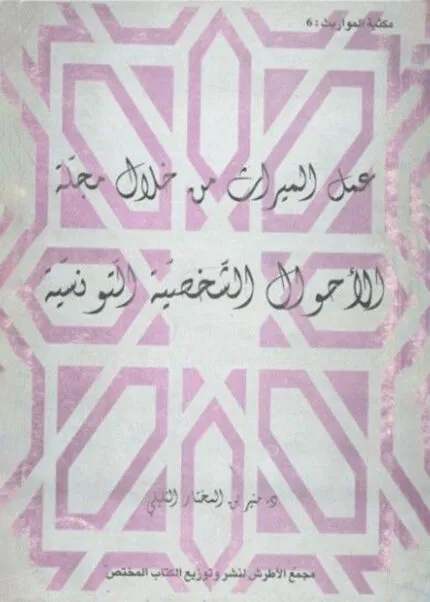 مكتبة المواريث : 6
عمل الميراث من خلال مجلّة
الأحوال الشّخصيّة التّونسيّة
د. منير بن المختار التليلي
مجمّع الأطرش لنشر وتوزيع الكتاب المختصّ